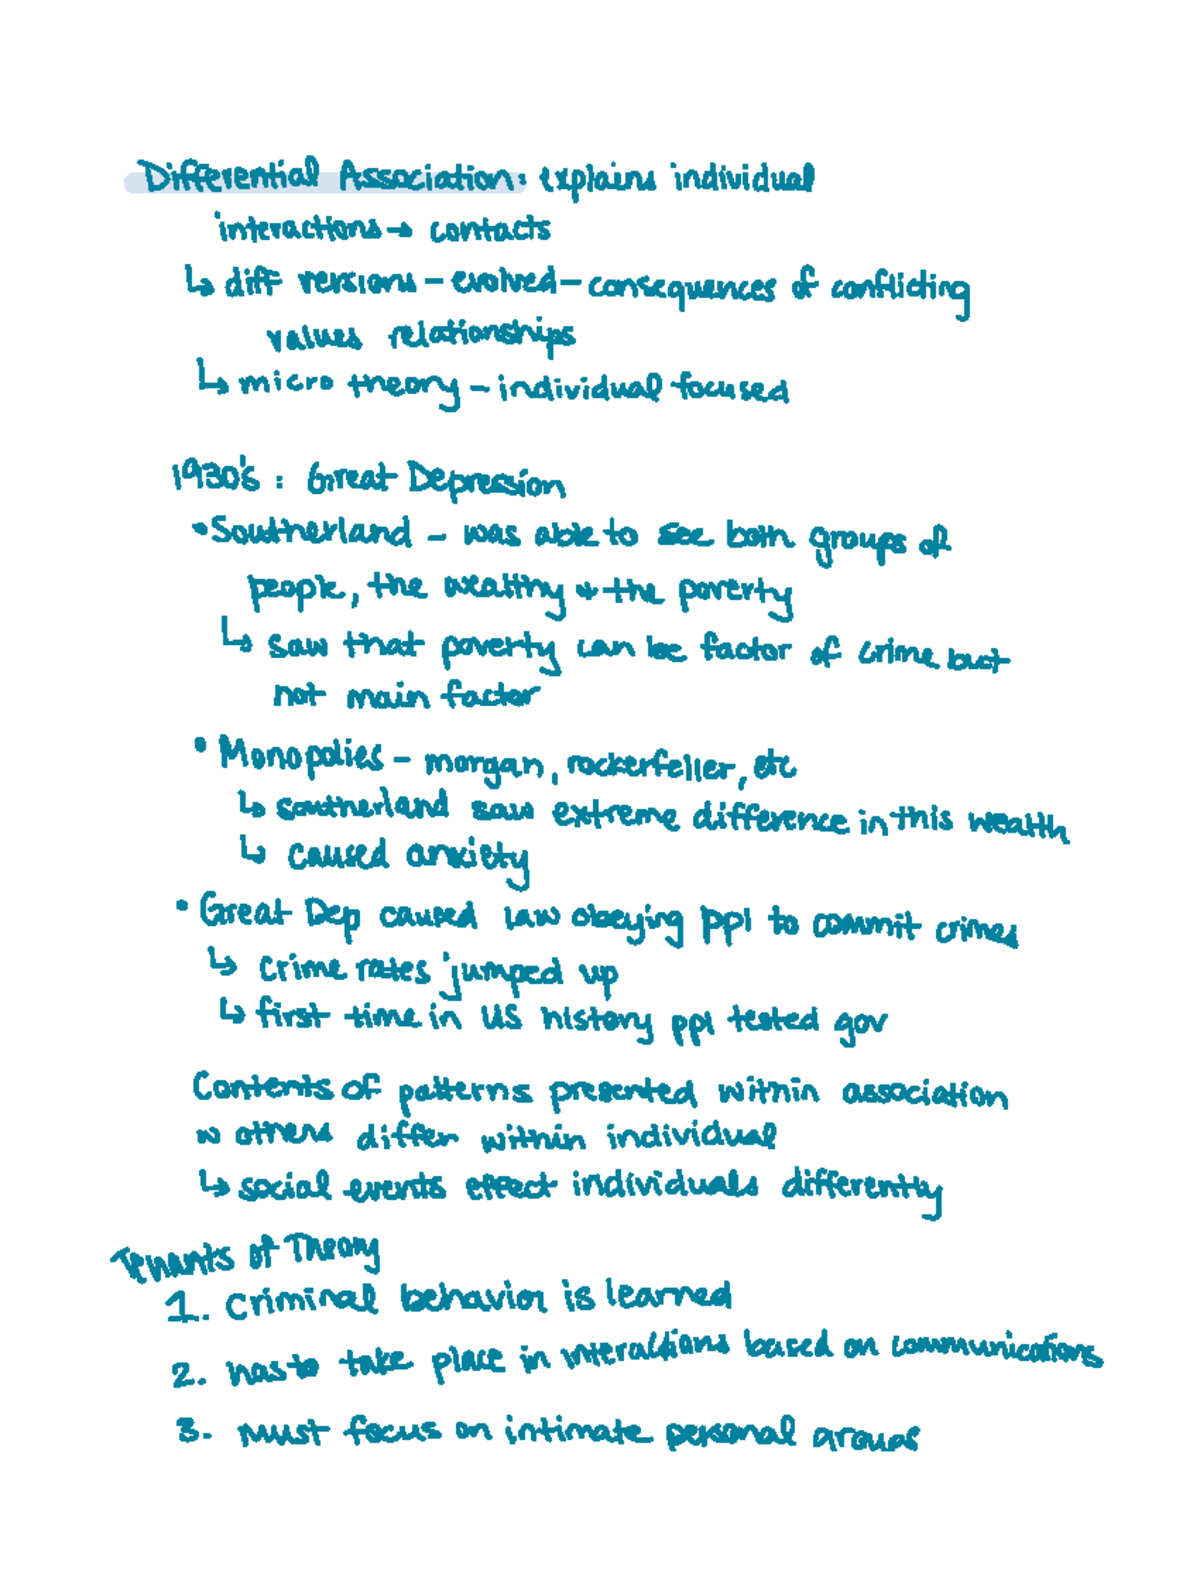 Differential Association: explains individual
interactions → contacts
↳ diff versions – evolved – consequences of conflicting
values relationships
↳ micro theory – individual focused
1930's : Great Depression
• Southerland – was able to see both groups of
people, the wealthy + the poverty
↳ saw that poverty can be factor of crime but
not main factor
• Monopolies – morgan, rockerfeller, etc
↳ southerland saw extreme difference in this wealth
↳ caused anxiety
• Great Dep caused law obeying ppl to commit crimes
↳ crime rates jumped up
↳ first time in US history ppl tested gov
Contents of patterns presented within association
w others differ within individual
↳ social events effect individuals differently
Tenants of Theory
1. criminal behavior is learned
2. has to take place in interactions based on communications
3. must focus on intimate personal groups